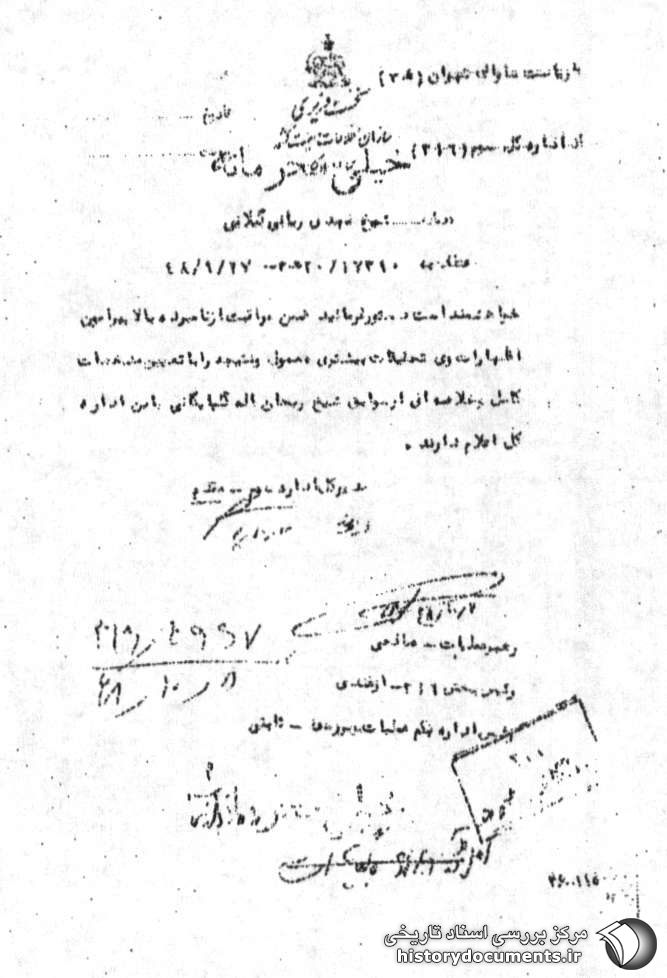 بریاست ساواک تهران (۲۰ھ)
نخست وزیری
تاریخ
سازمان اطلاعات و امنیت کشور
از اداره کل سوم (۳۱۶)
خیلی محرمانه
درباره شیخ مهدی ربانی گیلانی
عطف به ۱۷۳۱۰/۲۰ھ۲ - ۴۸/۹/۲۷
خواهشمند است دستور فرمائید ضمن مراقبت از نامبرده بالا پیرامون
اظهارات وی تحقیقات بیشتری معمول و نتیجه را با تعیین مشخصات
کامل و خلاصه ای از سوابق شیخ ریحان اله گلپایگانی باین اداره
کل اعلام دارند .
مدیر کل اداره سوم - مقدم
۴۸/۱۰/۲
رهبر عملیات - صالحی
رئیس بخش ۳۱۶ - ازغندی
رئیس اداره یکم عملیات و بررسی - ثابتی
۴۸/۱۰/۱۱
خیلی محرمانه
۳۶۰۱۱۵
مرکز بررسی اسناد تاریخی
historydocuments.ir